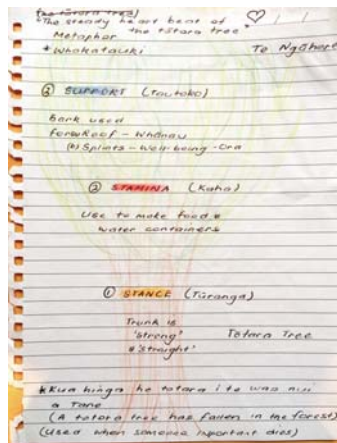 (The tōtara tree)
"The steady heart beat of
Metaphor the tōtara tree
* Whakataukī
Te Ngāhere
③ SUPPORT (Tautoko)
Bark used
for Roof - Whānau
(b) Splints - Well-being - Ora
② STAMINA (Kaha)
Use to make food &
water containers
① STANCE (Tūranga)
Trunk is
'Strong'
& 'Straight'
Tōtara Tree
* Kua hinga he tōtara i te wao nui
a Tāne
(A totara tree has fallen in the forest)
(Used when someone important dies)